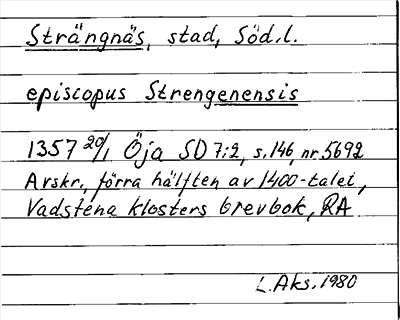 Strängnäs, stad, Söd.l.
episcopus Strengenensis
1357 20/1 Öja SD 7:2, s.146, nr 5692
Avskr., förra hälften av 1400-talet,
Vadstena klosters brevbok, RA
L.Aks. 1980